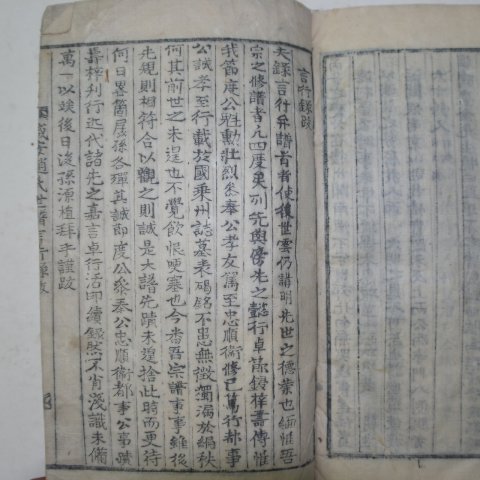 言行錄跋
夫錄言行弁譜首者使後世雲仍講明先世之德業也緬惟吾
宗之修譜者凡四度矣列先與傍先之懿行卓蹟鋟梓壽傳惟
我節度公魁勳壯烈參奉公孝友篤至忠順衛修己篤行都事
公誠孝至行載於國乘州誌墓表碣銘不患無徵獨漏於編秩
何其前世之未遑也不覺飲恨哽塞也今番吾宗譜事事維後
先規則相符合以觀之則誠是大譜先蹟未遑捨此時而更待
何日畧篇辱孫各殫其誠即度公參奉公忠順衛都事公事蹟
壽梓刊行近代諸先之嘉言卓行活印續錄然不肖淺識未備
萬一以竢後日後孫源植拜手謹跋
咸安趙氏世譜言行錄跋